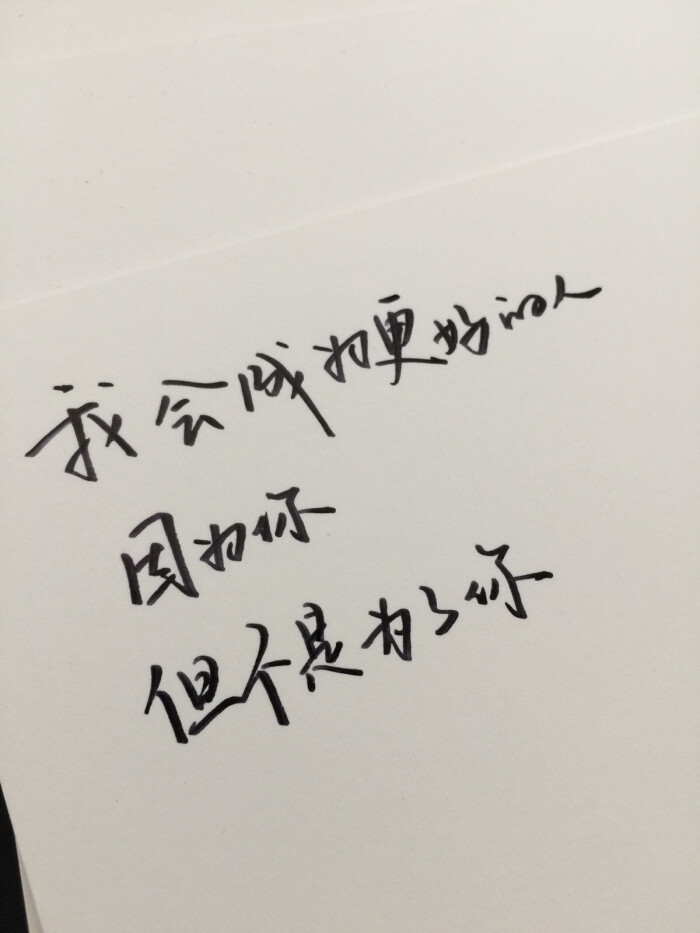 我会成为更好的人
因为你
但不是为了你